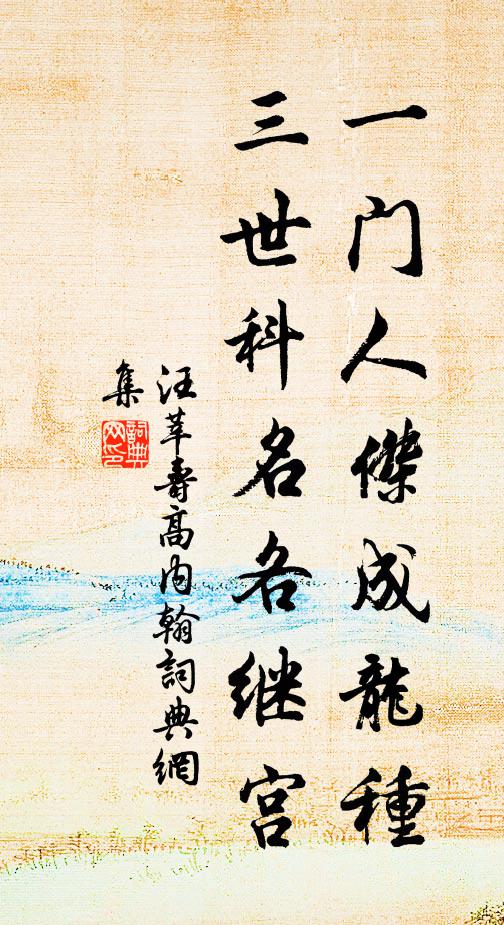 一門人傑成龍種
三世科名各继宫
汪莘壽高内翰詞典網
集
詞典
网印